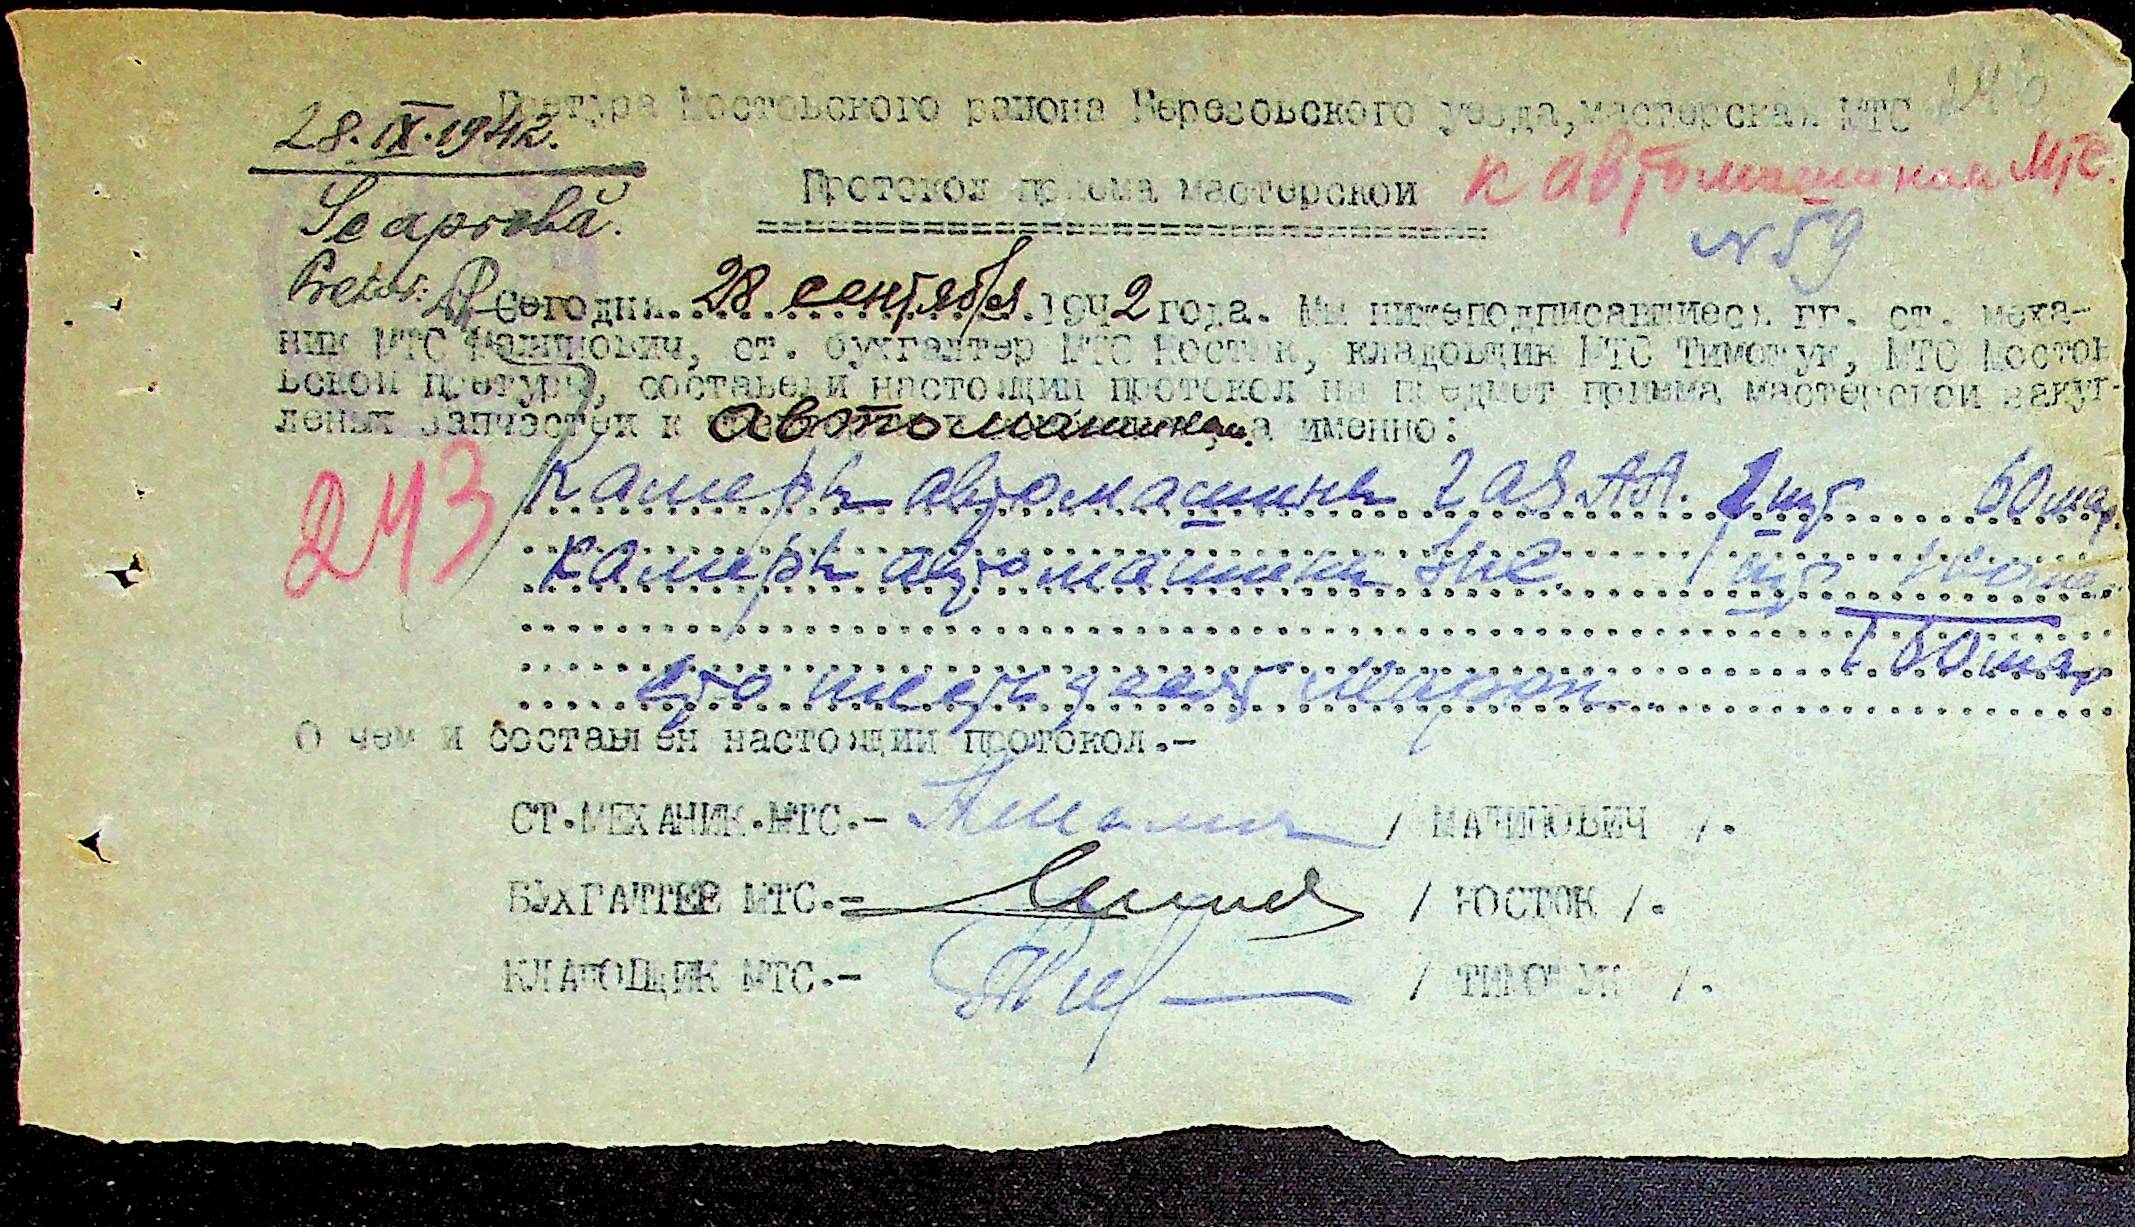 Претура Мостовского района Березовского уезда, мастерская МТС
28.IX.1942.
Протокол приема мастерской к автомашинам МТС.
Se aprobă.
N 59
Pretor:
Сегодня 28 сентября 1942 года. Мы нижеподписавшиеся гг. ст. меха-
ник МТС Мачинович, ст. бухгалтер МТС Косток, кладовщик МТС Тимощук, МТС Мостов
вской претуры, составели настоящий протокол на предмет приема мастерской закуп-
леных запчастей к автомашинам, а именно:
243
Камеры автомашины ГАЗ.АА. 1 шт 60 мар.
Камеры автомашины ЗИС. 1 шт 100 мар.
160 мар
Сто шестьдесят марок.
О чем и составлен настоящий протокол.-
СТ.МЕХАНИК.МТС.- / МАЧИНОВИЧ /.
БУХГАЛТЕР МТС.- / КОСТОК /.
КЛАДОВЩИК МТС.- / ТИМОЩУК /.